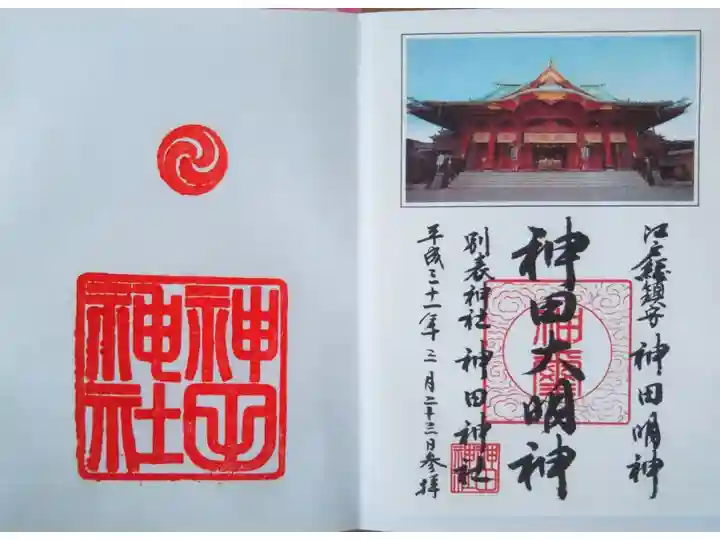 江戸総鎮守 神田明神
神田大明神
別表神社 神田神社
平成三十一年 三月二十三日参拝
神田神社
神田
神社